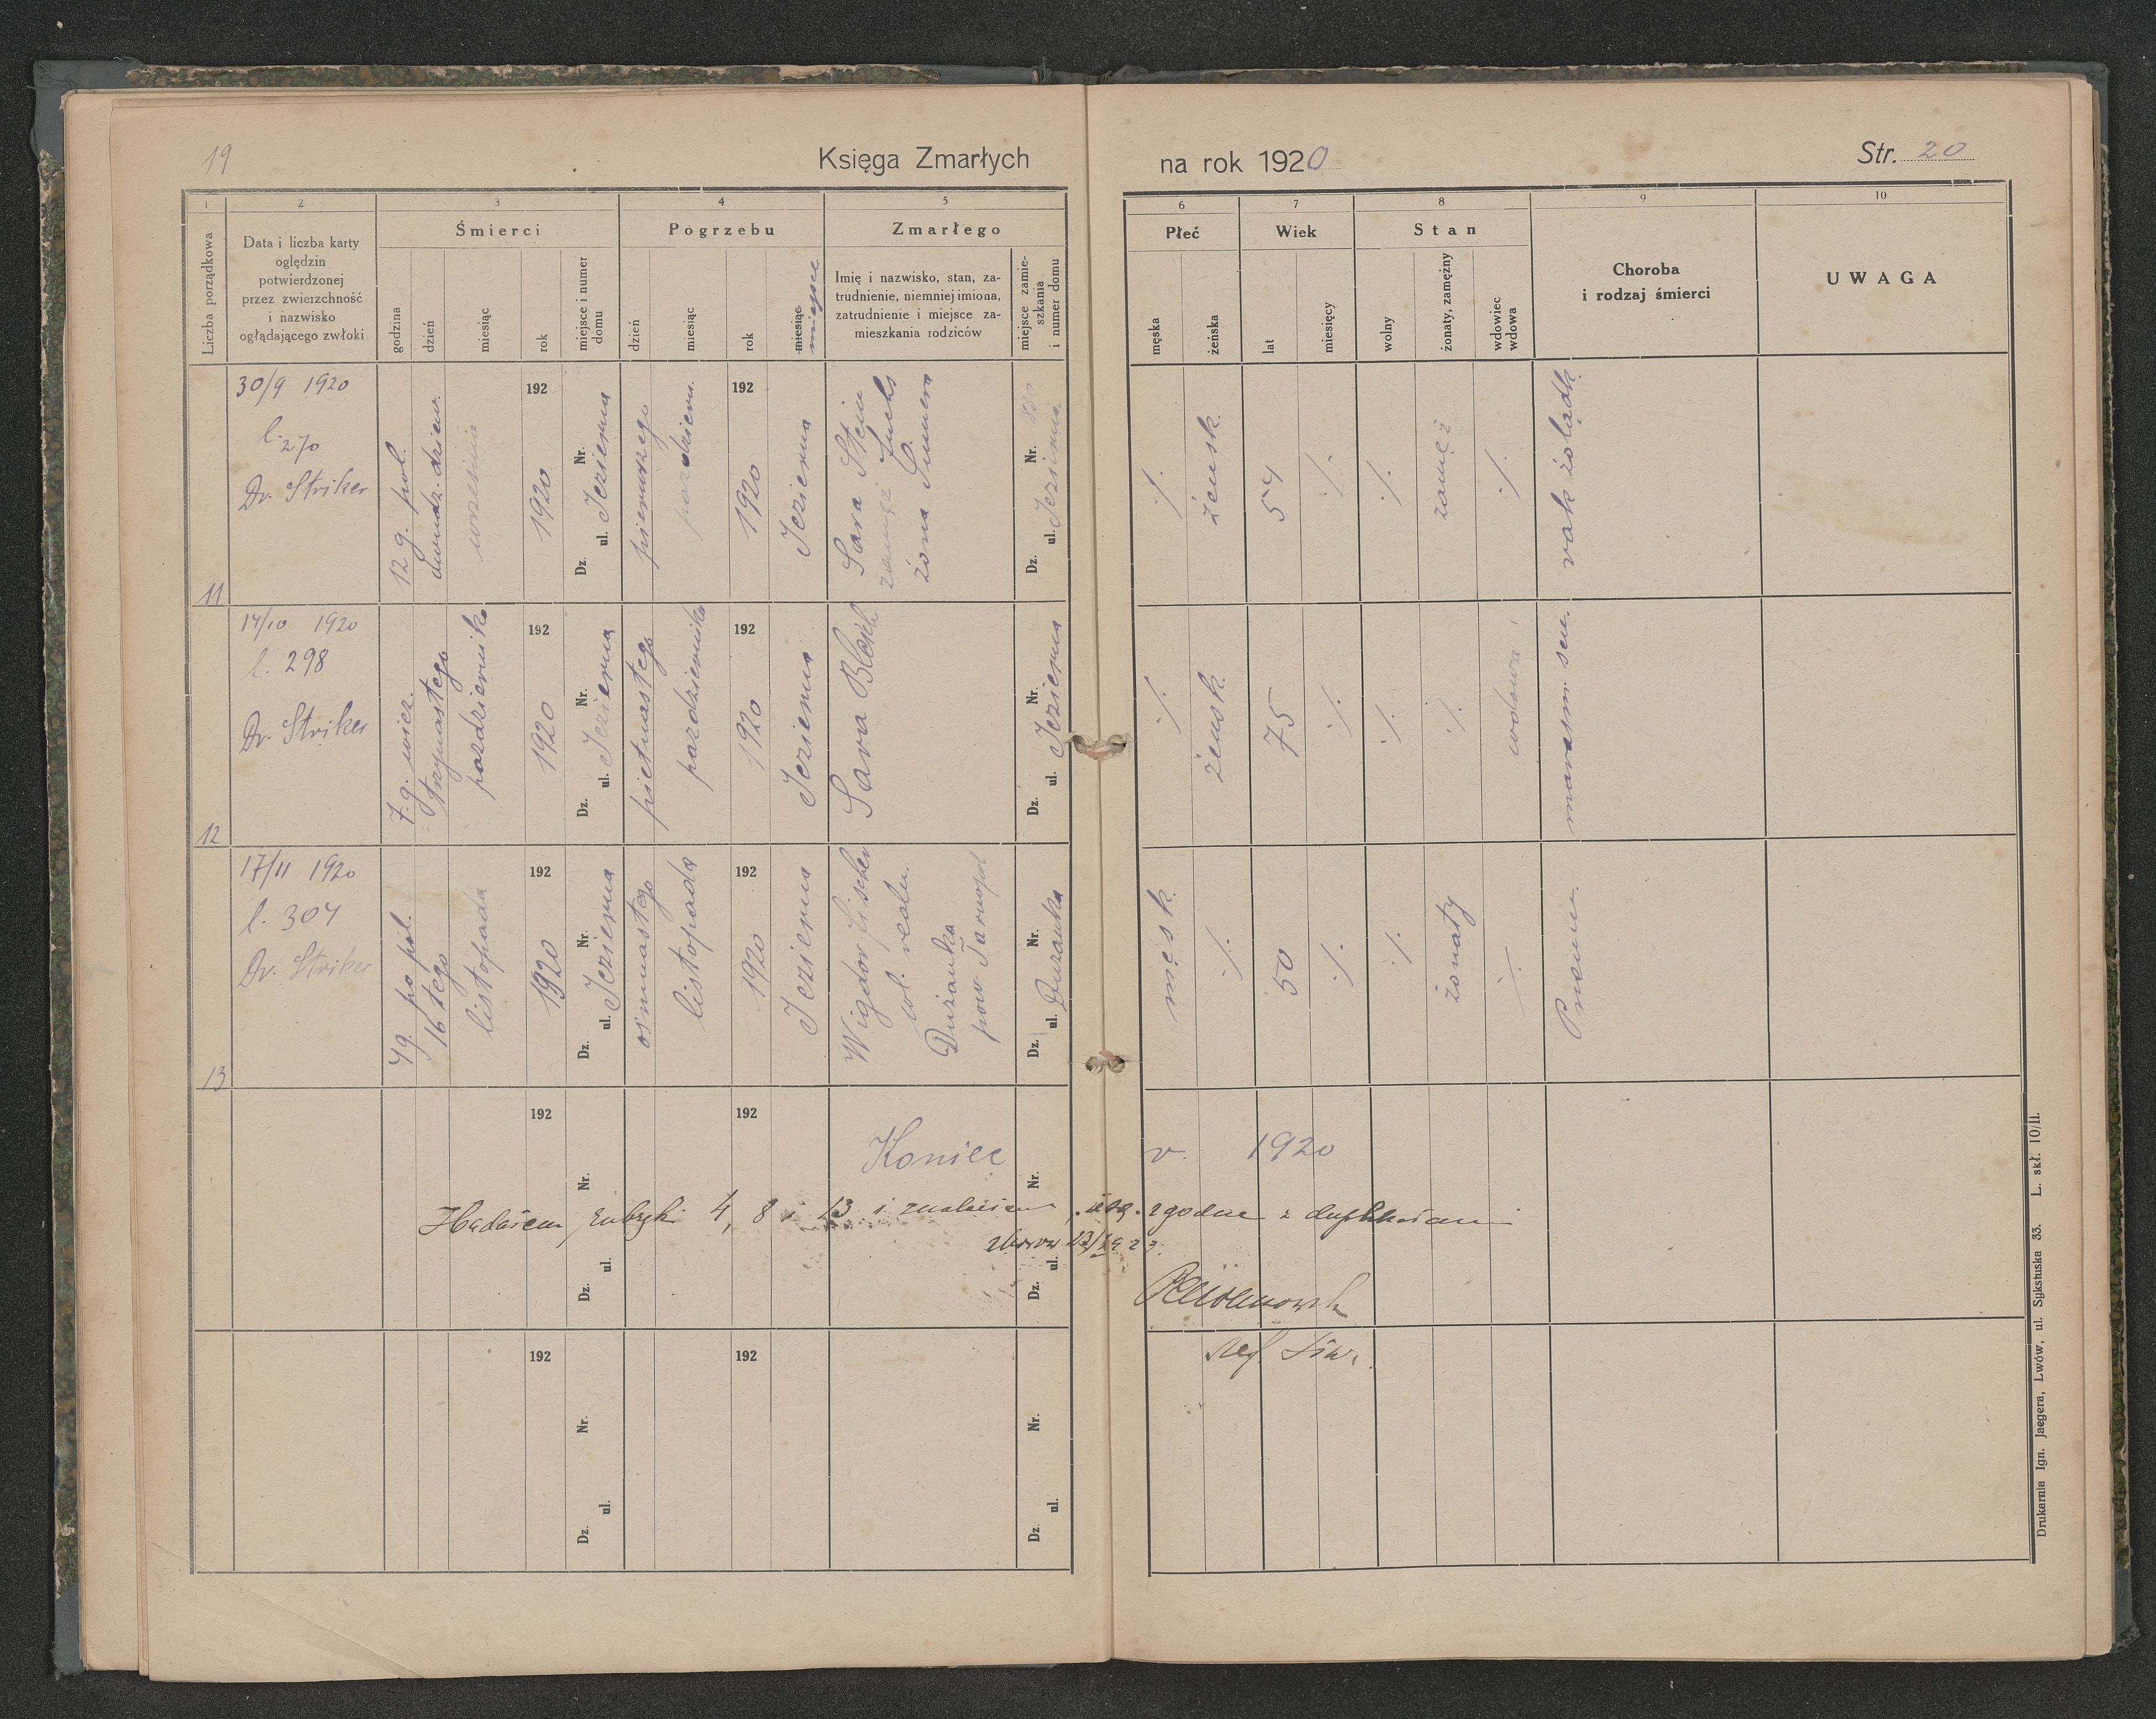 19
Księga Zmarłych
na rok 1920
Str. 20
1
2
3
4
5
6
7
8
9
10
Liczba porządkowa
Data i liczba karty
oględzin
potwierdzonej
przez zwierzchność
i nazwisko
oglądającego zwłoki
Śmierci
godzina
dzień
miesiąc
rok
miejsce i numer
domu
Pogrzebu
dzień
miesiąc
rok
miesiąc
miejsce
Zmarłego
Imię i nazwisko, stan, za-
trudnienie, niemniej imiona,
zatrudnienie i miejsce za-
mieszkania rodziców
miejsce zamie-
szkania
i numer domu
Płeć
męska
żeńska
Wiek
lat
miesięcy
Stan
wolny
żonaty, zamężny
wdowiec
wdowa
Choroba
i rodzaj śmierci
UWAGA
11
30/9 1920
l. 270
Dr. Striker
12 g. poł.
dwudz. dziew.
września
192
1920
Dz. ul. Nr.
Jezierna
pierwszego
października
192
1920
Jezierna
Sara Stein
zamęż Fuchs
żona Sumera
Dz. ul. Nr.
Jezierna
./.
żeńsk.
54
./.
./.
zamęż
./.
rak żołądk.
12
14/10 1920
l. 298
Dr. Striker
7. g. wiecz.
trzynastego
październik
192
1920
Dz. ul. Nr.
Jezierna
pietnastego
październik
192
1920
Jezierna
Sara Bleich
Dz. ul. Nr.
Jezierna
./.
żeńsk.
75
./.
./.
./.
wdowa
marasm. sen.
13
17/11 1920
l. 304
Dr. Striker
4g. po poł.
16tego
listopada
192
1920
Dz. ul. Nr.
Jezierna
ośmnastego
listopada
192
1920
Jezierna
Wigdor Fischer
wł. realn.
Dużanka
pow Tarnopol
Dz. ul. Nr.
Dużanka
męsk.
./.
50
./.
./.
żonaty
./.
Pneum.
192
Dz. ul. Nr.
192
Dz. ul. Nr.
Koniec r. 1920
Zbadałem rubryki 4, 8 i 13 i znalazłem zgodne z duplikatami
192
Dz. ul. Nr.
192
Dz. ul. Nr.
Drukarnia Ign. Jaegera, Lwów, ul. Sykstuska 33. L. skł. 10/II.